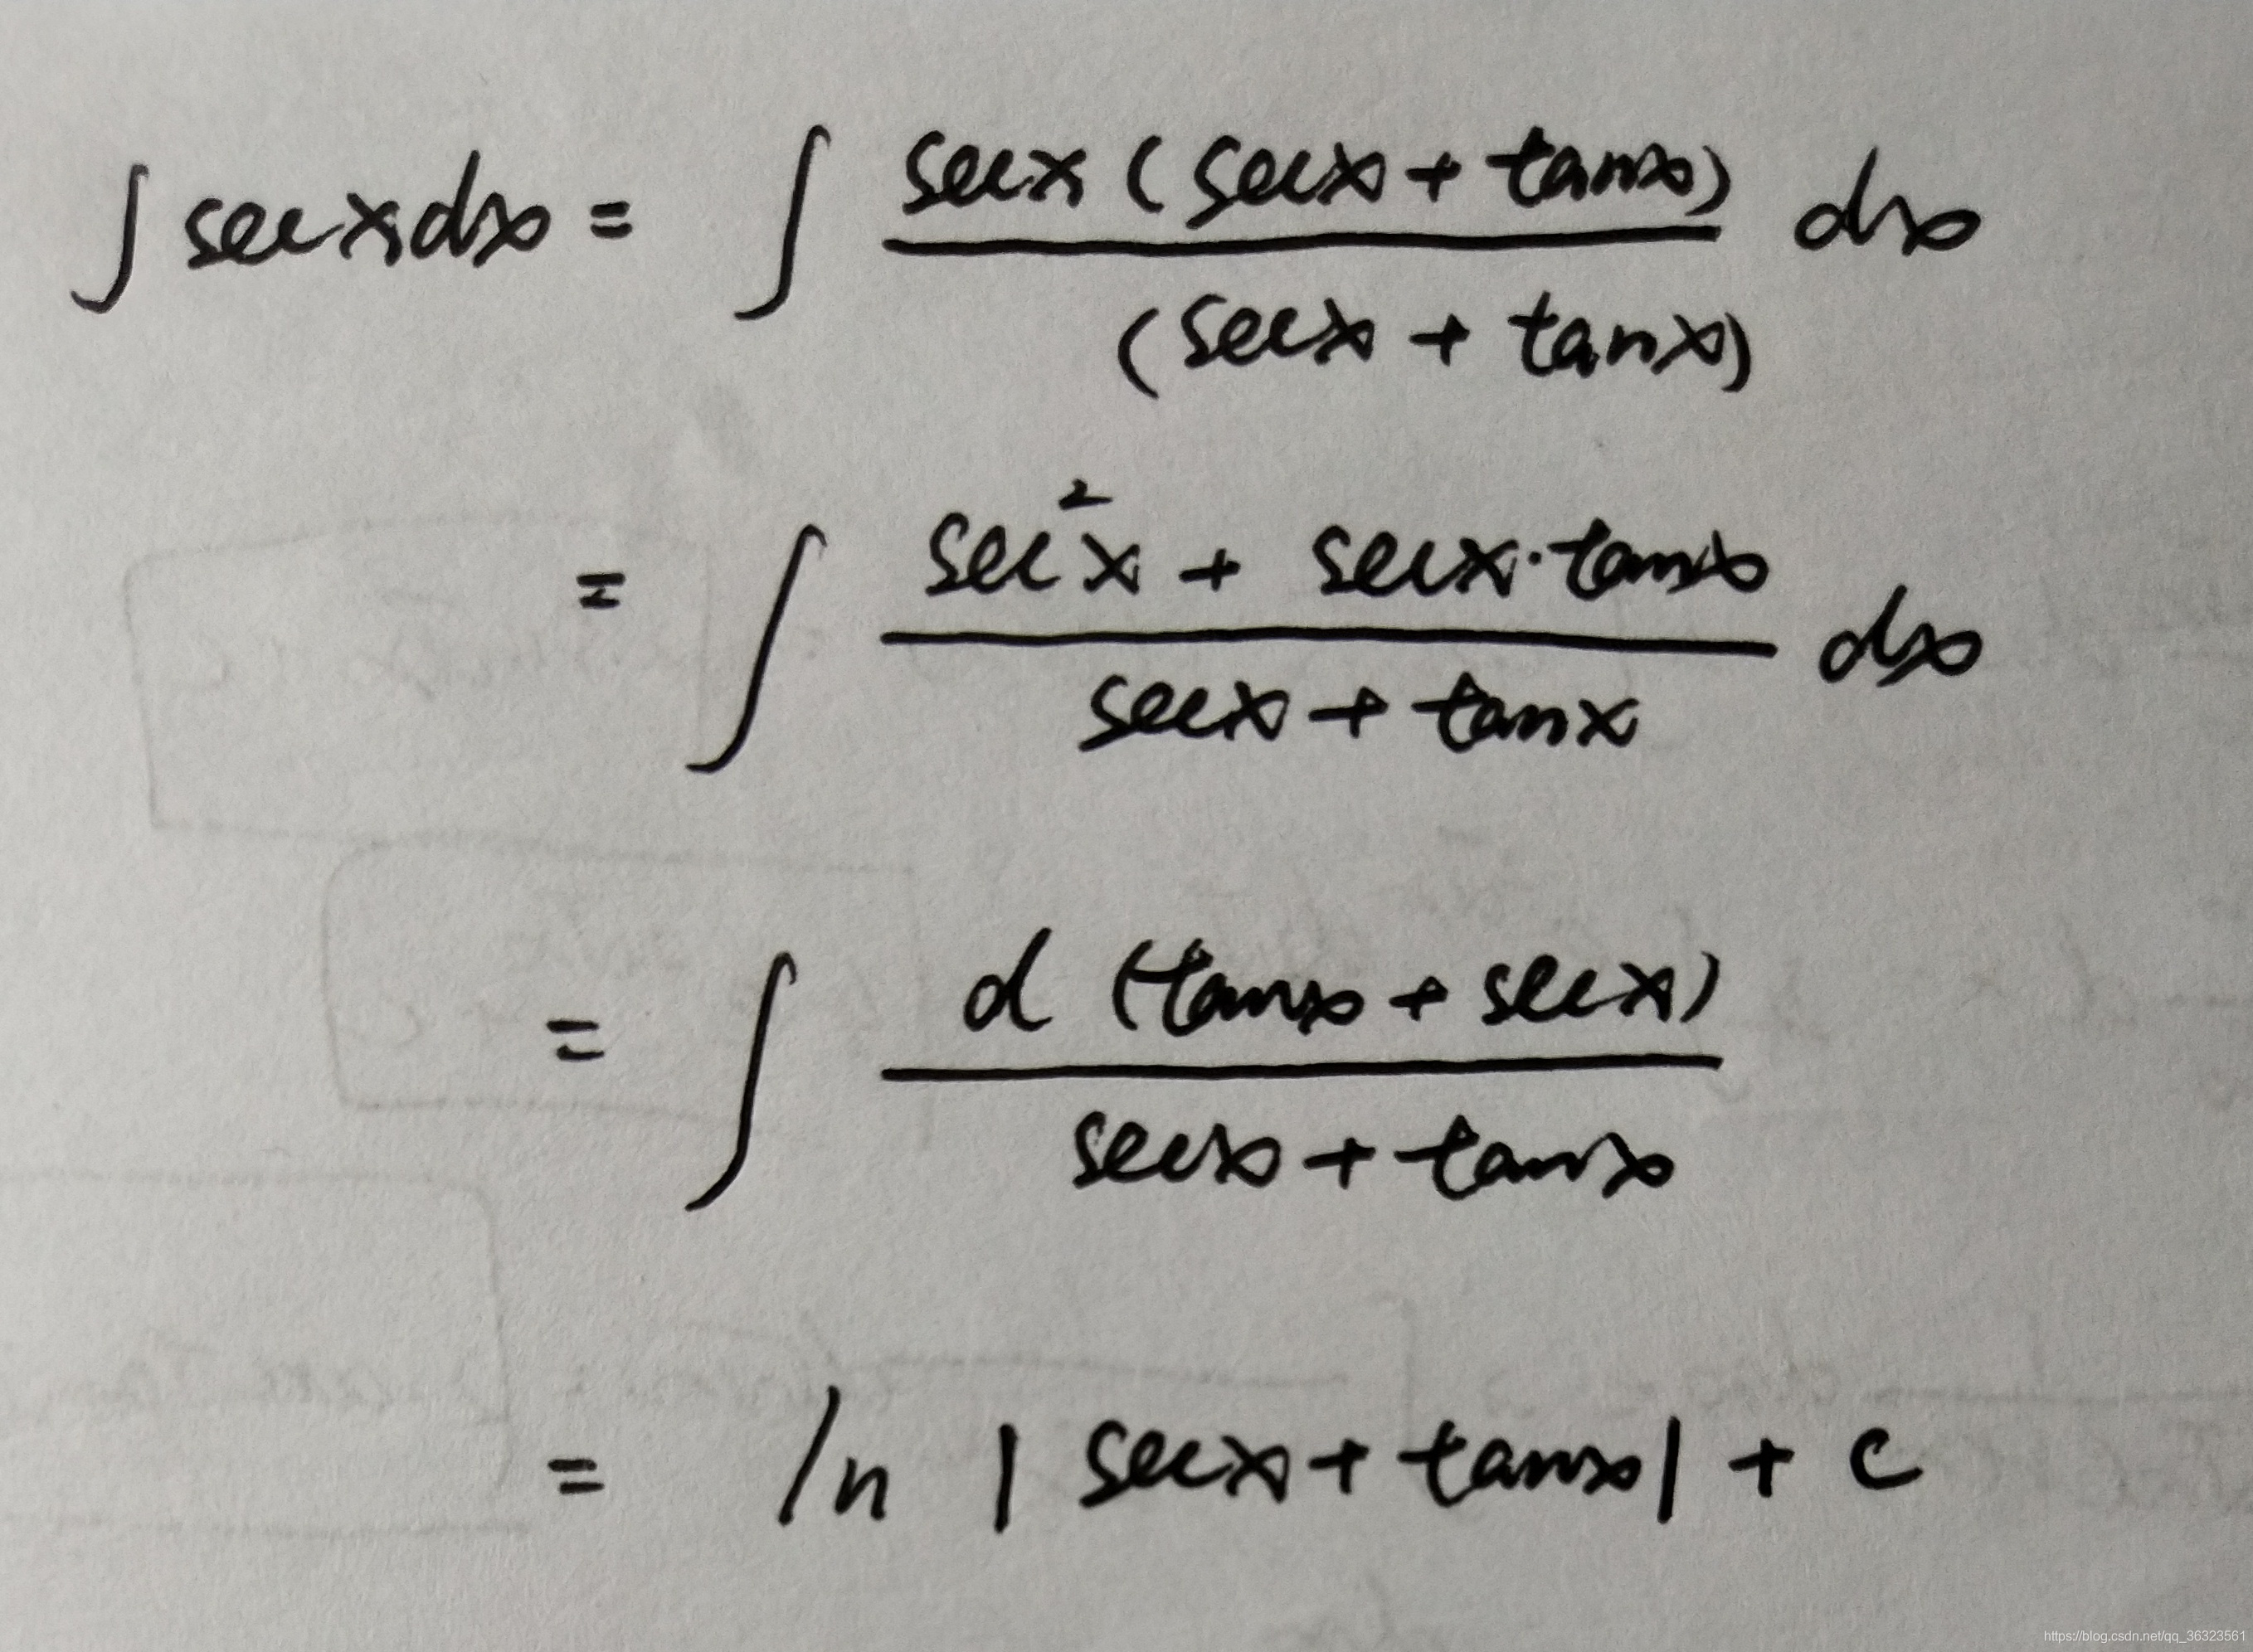 ∫ sec x dx = ∫ \frac{sec x (sec x + tan x)}{(sec x + tan x)} dx
= ∫ \frac{sec^2 x + sec x · tan x}{sec x + tan x} dx
= ∫ \frac{d (tan x + sec x)}{sec x + tan x}
= ln | sec x + tan x | + c
https://blog.csdn.net/qq_36323561